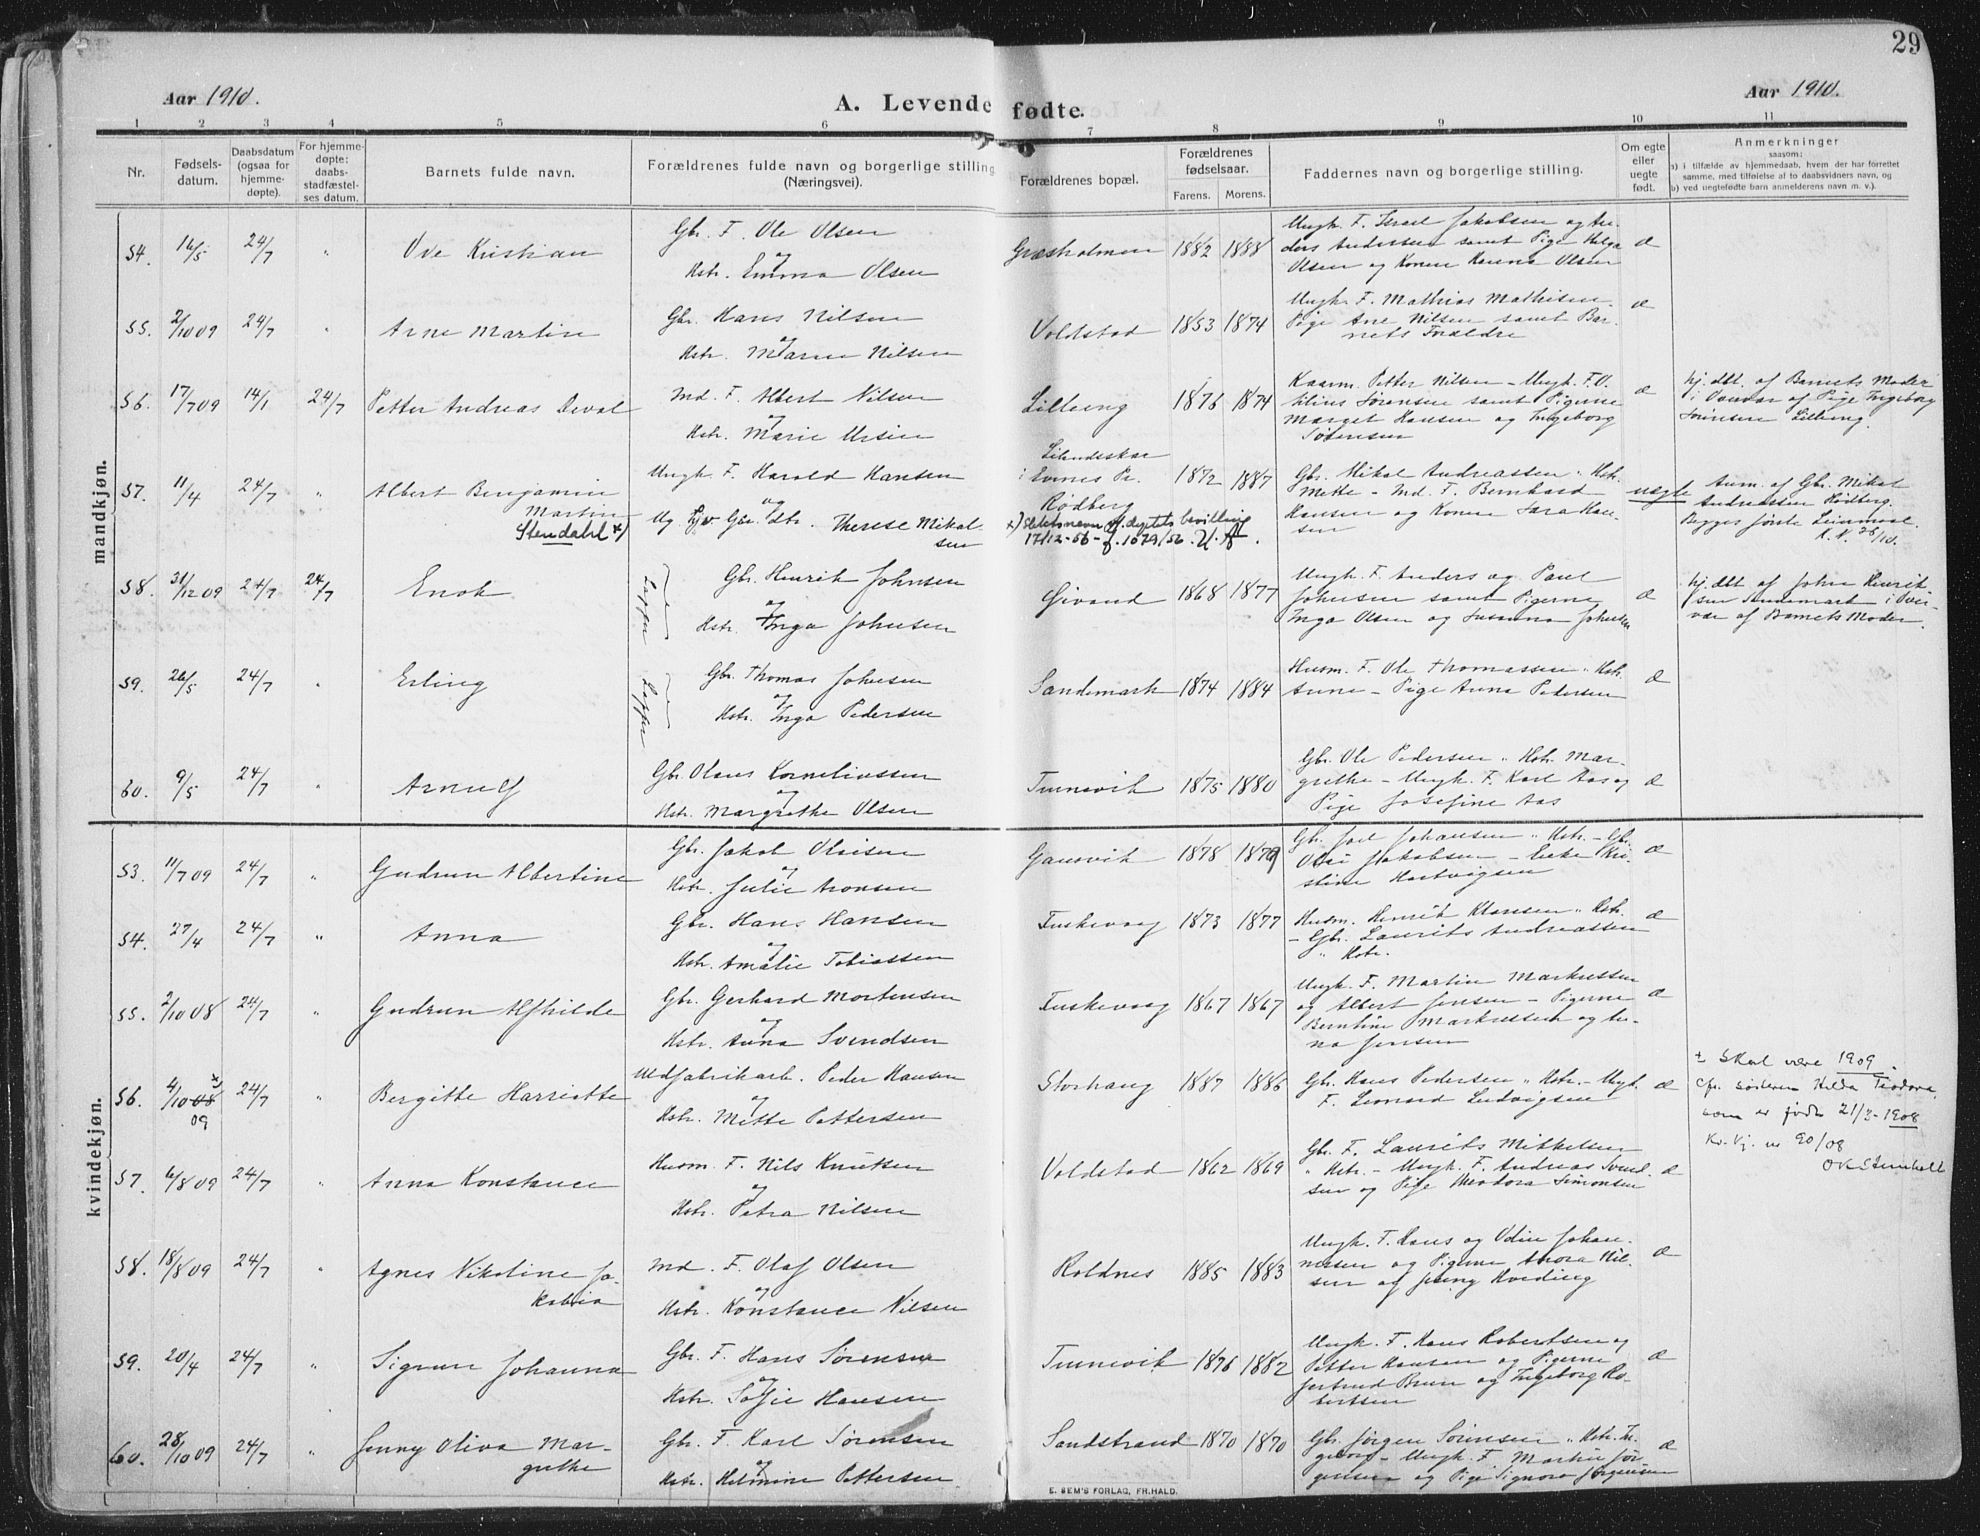 29
Aar 1910.
A. Levende fødte.
Aar 1910.
1 2 3 4 5 6 7 8 9 10 11
Nr.
Fødsels-
datum.
Daabsdatum
(ogsaa for
hjemme-
døpte).
For hjemme-
døpte:
daabs-
stadfæstel-
ses datum.
Barnets fulde navn.
Forældrenes fulde navn og borgerlige stilling
(Næringsvei).
Forældrenes bopæl.
Forældrenes
fødselsaar.
Farens. Morens.
Faddernes navn og borgerlige stilling.
Om egte
eller
uegte
født.
Anmerkninger
saasom:
a) i tilfælde av hjemmedaab, hvem der har forrettet
samme, med tilføielse af to daabsvidners navn, og
b) ved uegtefødte barn anmelderens navn m. v.).
mandkjøn.
54. 16/5 24/7 " Ove Kristian
Gbr. F. Ole Olsen
og
Hstr. Emma Olsen
Græsholmen 1882 1888
Ungk. F. Israel Jakobsen og An-
ders Andersen samt Pige Helga
Olsen og Konen Hanna Olsen
æ
55. 2/10 09 24/7 " Arne Martin
Gbr. Hans Nilsen
og
Hstr. Maren Nilsen
Voldstad 1853 1874
Ungk. F. Mathias Mathisen
Pige Ane Nilsen samt Bar-
nets Forældre
æ
56. 17/7 09 14/1 24/7 Petter Andreas
Md. F. Albert Nilsen
og
Hstr. Marie
Lilleeng 1876 1874
Kaarm. Petter Nilsen - Ungk. F. O.
Sørensen samt Pigerne
Marget Hansen og Ingeborg
Sørensen
æ
hj. dbt. af Barnets Moder
i Overvær af Pige Ingeborg
Sørensen Lilleeng.
57. 11/4 24/7 " Albert Benjamin
Martin
Stendahl x)
Ungk. F. Harald Hansen
og
Ug. Gbr. dtr. Therese Mikal-
sen
i Evenes Pr.
Rødberg
1872 1887
x) Slektsnavn bevilling
17/12-56 - 1679/56.
Gbr. Mikal Andreassen " Hstr.
Mette - Md. F. Bernhard
Hansen og Konen Sara Han-
sen
uegte
Anm. af Gbr. Mikal
Andreassen Rødberg.
Begges første Leiermaal.
58. 31/12 09 24/7 24/7 Enok
Lapper
Gbr. Henrik Johnsen
og
Hstr. Inga Johnsen
Givand 1868 1877
Ungk. F. Anders og Paul
Johnsen samt Pigerne
Inga Olsen og Susanna Johnsen
æ
hj. dbt. af John Henrik
sen Sandemark i Over-
vær af Barnets Moder.
59. 26/5 24/7 " Erling
Lapper
Gbr. Thomas Johnsen
og
Hstr. Inga Pedersen
Sandemark 1874 1884
Husm. F. Ole Thomassen " Hstr.
Anne - Pige Anna Pedersen
æ
60. 9/5 24/7 " Arnulf
Gbr. Olaus Korneliussen
og
Hstr. Margrethe Olsen
Tunnevik 1875 1880
Gbr. Ole Pedersen " Hstr. Mar-
grethe - Ungk. F. Karl Aas og
Pige Josefine Aas
æ
kvindekjøn.
53. 11/7 09 24/7 " Gudrun Albertine
Gbr. Jakob Olsen
og
Hstr. Julie Aronsen
Gausvik 1878 1879
Gbr. Joel Johansen " Hstr. - Gbr.
Jakobsen - Enke Kri-
stine Hartvigsen
æ
54. 27/4 24/7 " Anna
Gbr. Hans Hansen
og
Hstr. Amalie Tobiassen
Fuskevaag 1873 1877
Husm. Henrik Klausen " Hstr.
- Gbr. Laurits Andreassen
" Hstr.
æ
55. 2/10 08 24/7 " Gudrun Alfhilde
Gbr. Gerhard Mortensen
og
Hstr. Anna Svendsen
Fuskevaag 1867 1867
Ungk. F. Martin Markussen
og Albert Jensen - Pigerne
Berntine Markussen og An-
na Jensen
æ
56. 4/10 08 x) 09 24/7 " Bergitte Harriette
Uldfabrikarb. Peder Hansen
og
Hstr. Mette Pettersen
Storhaug 1887 1886
Gbr. Hans Pedersen " Hstr. - Ungk.
F. Leonard Ludvigsen
æ
x Skal være 1909.
Cfr. søsteren Hilda Teodora,
som er født 21/2-1908
Kv. Vj. nr 90/08
57. 6/8 09 24/7 " Anna Konstance
Husm. F. Nils Knutsen
og
Hstr. Petra Nilsen
Voldstad 1862 1869
Gbr. F. Laurits Mikkelsen
" Hstr. - Ungk. F. Andreas Svend-
sen og Pige Theodora Simonsen
æ
58. 18/8 09 24/7 " Agnes Nikoline Ja-
kobia
Md. F. Olaf Olsen
og
Hstr. Konstance Nilsen
Roldnes 1885 1883
Ungk. F. Hans og Odin Johan-
nesen og Pigerne Anora Nil-
sen og Jenny Kveding
æ
59. 20/4 24/7 " Sigrun Johanna
Gbr. F. Hans Sørensen
og
Hstr. Sofie Hansen
Tunnevik 1876 1882
Ungk. F. Hans Robertsen og
Petter Hansen og Pigerne
Gertrud Brun og Ingeborg Ro-
bertsen
æ
60. 28/10 09 24/7 " Jenny Oliva Mar-
grethe
Gbr. F. Karl Sørensen
og
Hstr. Helmine Pettersen
Sandstrand 1870 1870
Gbr. Jørgen Sørensen " Hstr. In-
geborg - Ungk. F. Martin Jør-
gensen og Pige Signora Jørgensen
æ
E. SEM'S FORLAG, FR.HALD.